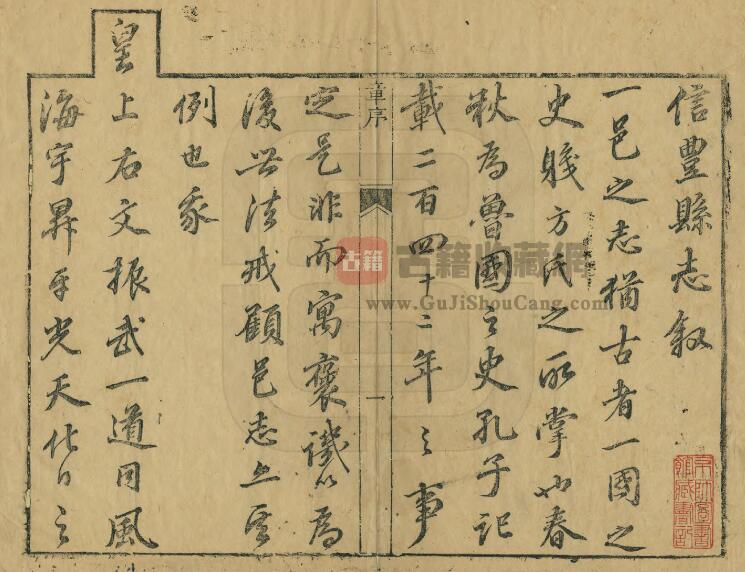 信豐縣志叙
一邑之志猶古者一國之
史職方氏之所掌也春
秋為魯國之史孔子記
載二百四十二年之事
童序
一
定是非而寓褒譏以為
後世法戒顧邑志亦其
例也我
皇上右文振武一道同風
海宇昇平光天化日之
京師圖書
館藏書記
古籍
古籍收藏網
www.GuJiShouCang.com